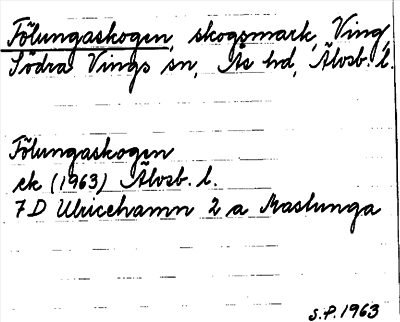 Fölungaskogen, skogsmark, Ving,
Södra Vings sn, Ås hd, Älvsb. l.
Fölungaskogen
ek (1963) Älvsb. l.
7 D Ulricehamn 2 a Maslunga
S.P. 1963